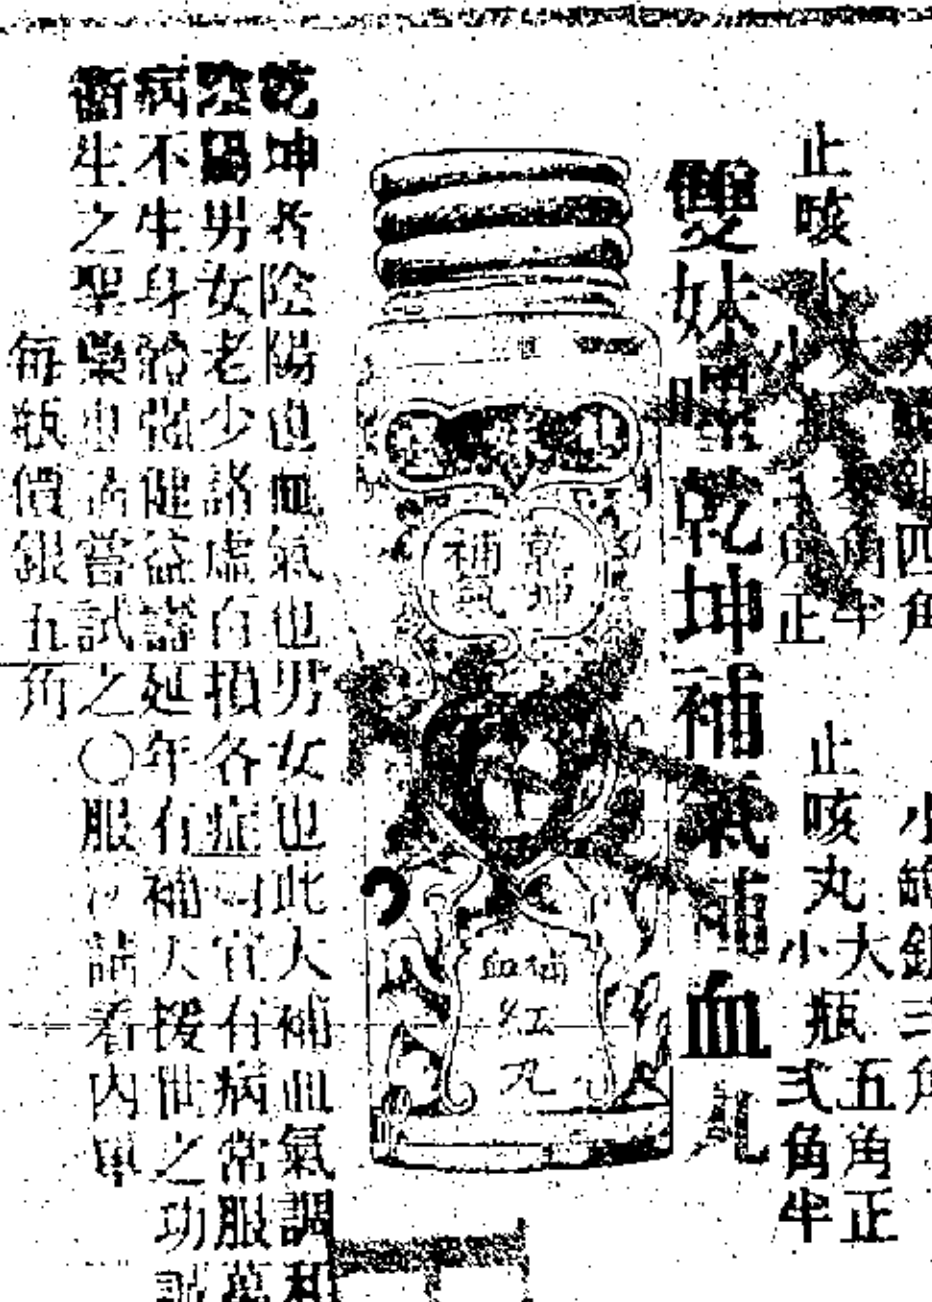 小罐銀三角
止咳水
小瓶
角正
角半
止咳丸
大瓶五角正
小瓶弍角半
雙妹嘜乾坤補氣補血丸
乾坤
補氣
補血
紅丸
乾坤者陰陽也血氣也男女也此大補血氣調和
陰陽男女老少諸虛百損各症均宜有病常服萬
病不生身體強健益壽延年有補天援世之功誠
衛生之聖藥也請嘗試之〇服法請看內單
每瓶價銀五角